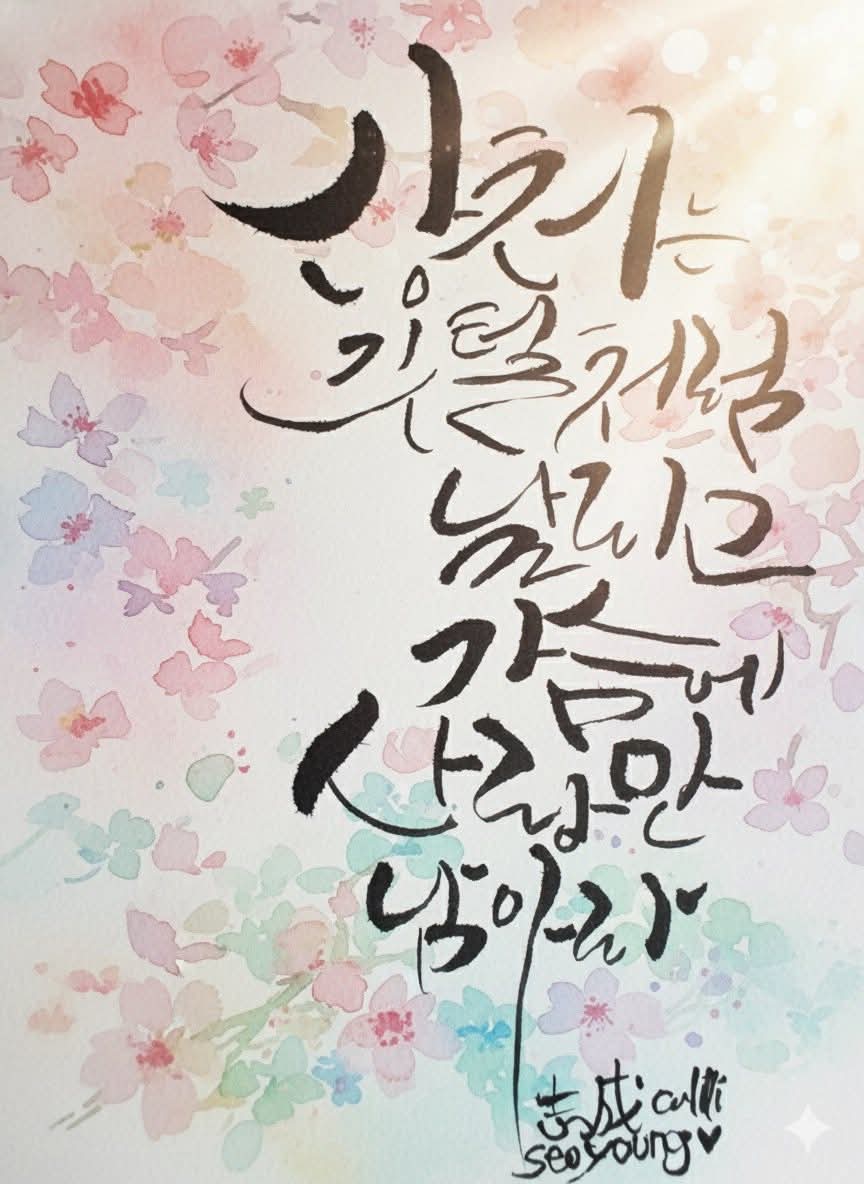 상처는
깃털처럼
날리고
가슴에
사랑만
남아라
志成 calli
seoyoung♥